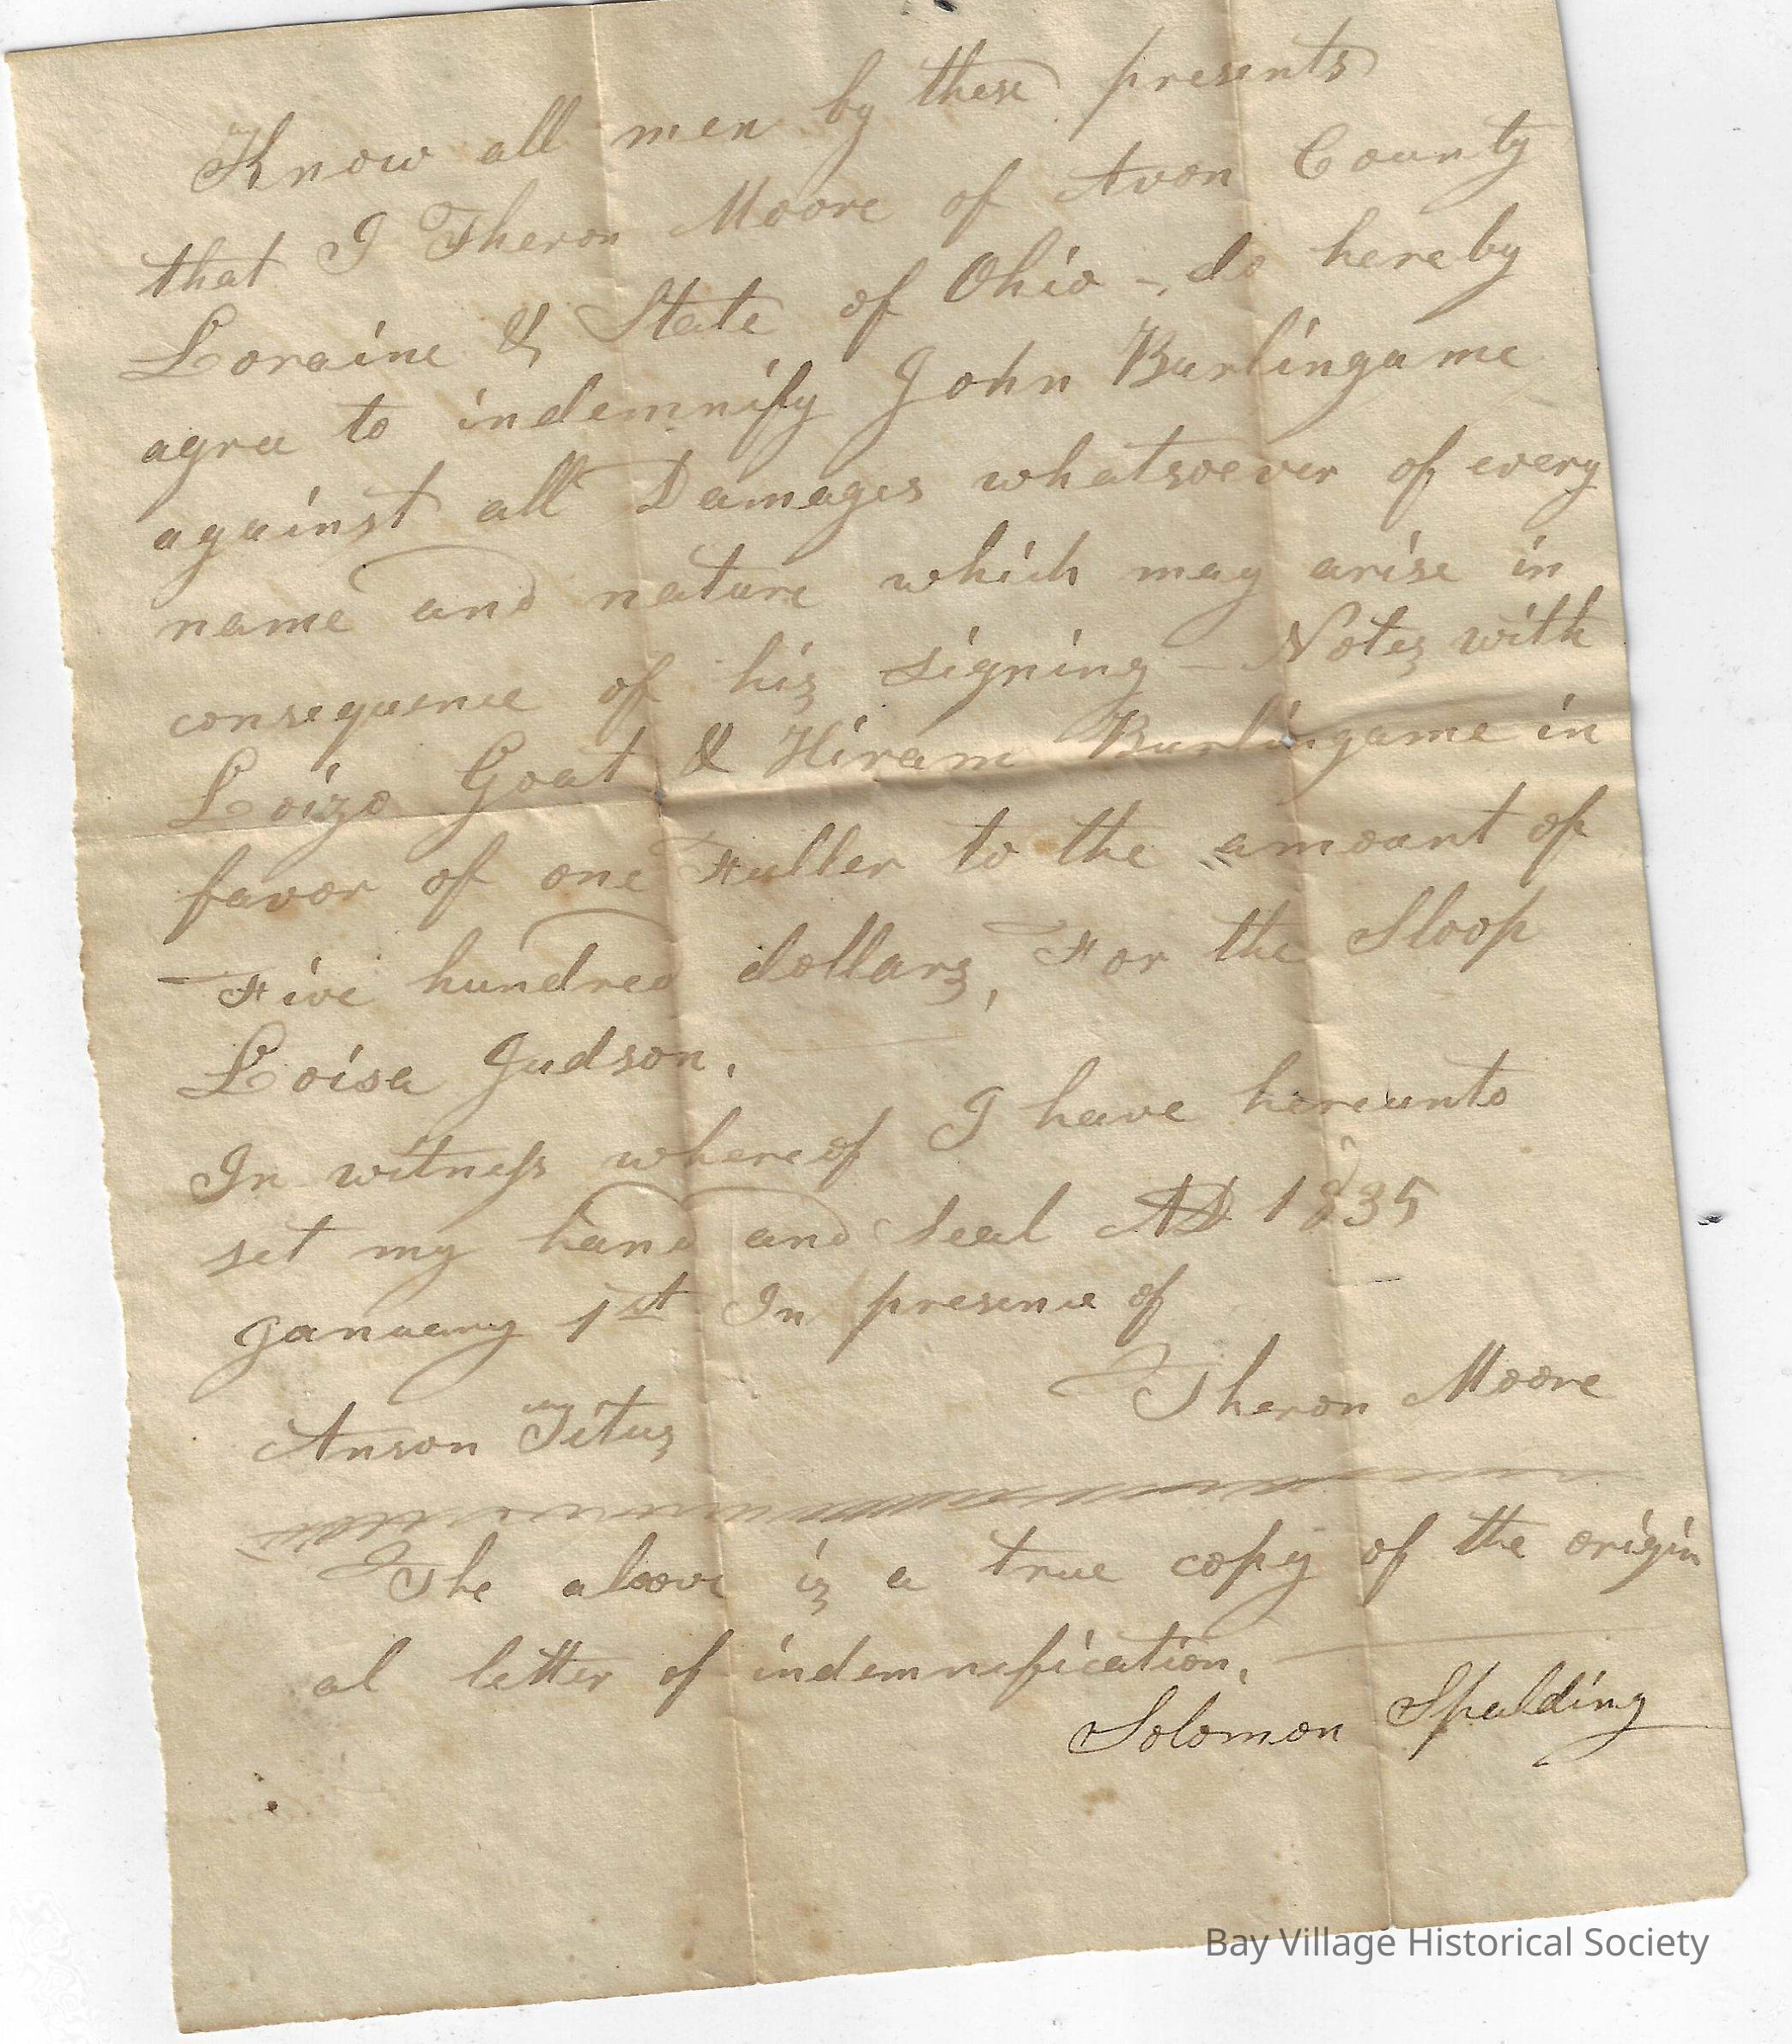 Know all men by these presents
that I Theron Moore of Avon County
Loraine & State of Ohio - do hereby
agree to indemnify John Burlingame
against all Damages whatsoever of every
name and nature which may arise in
consequence of his signing - Notes with
Loizo Goat & Hiram Burlingame in
favor of one Fuller to the amount of
Five hundred dollars, For the Sloop
Loisa Judson.
In witness whereof I have hereunto
set my hand and seal AD 1835
January 1st In presence of
Theron Moore
Anson Titus
The above is a true copy of the origin
al letter of indemnification.
Solomon Spalding
Bay Village Historical Society